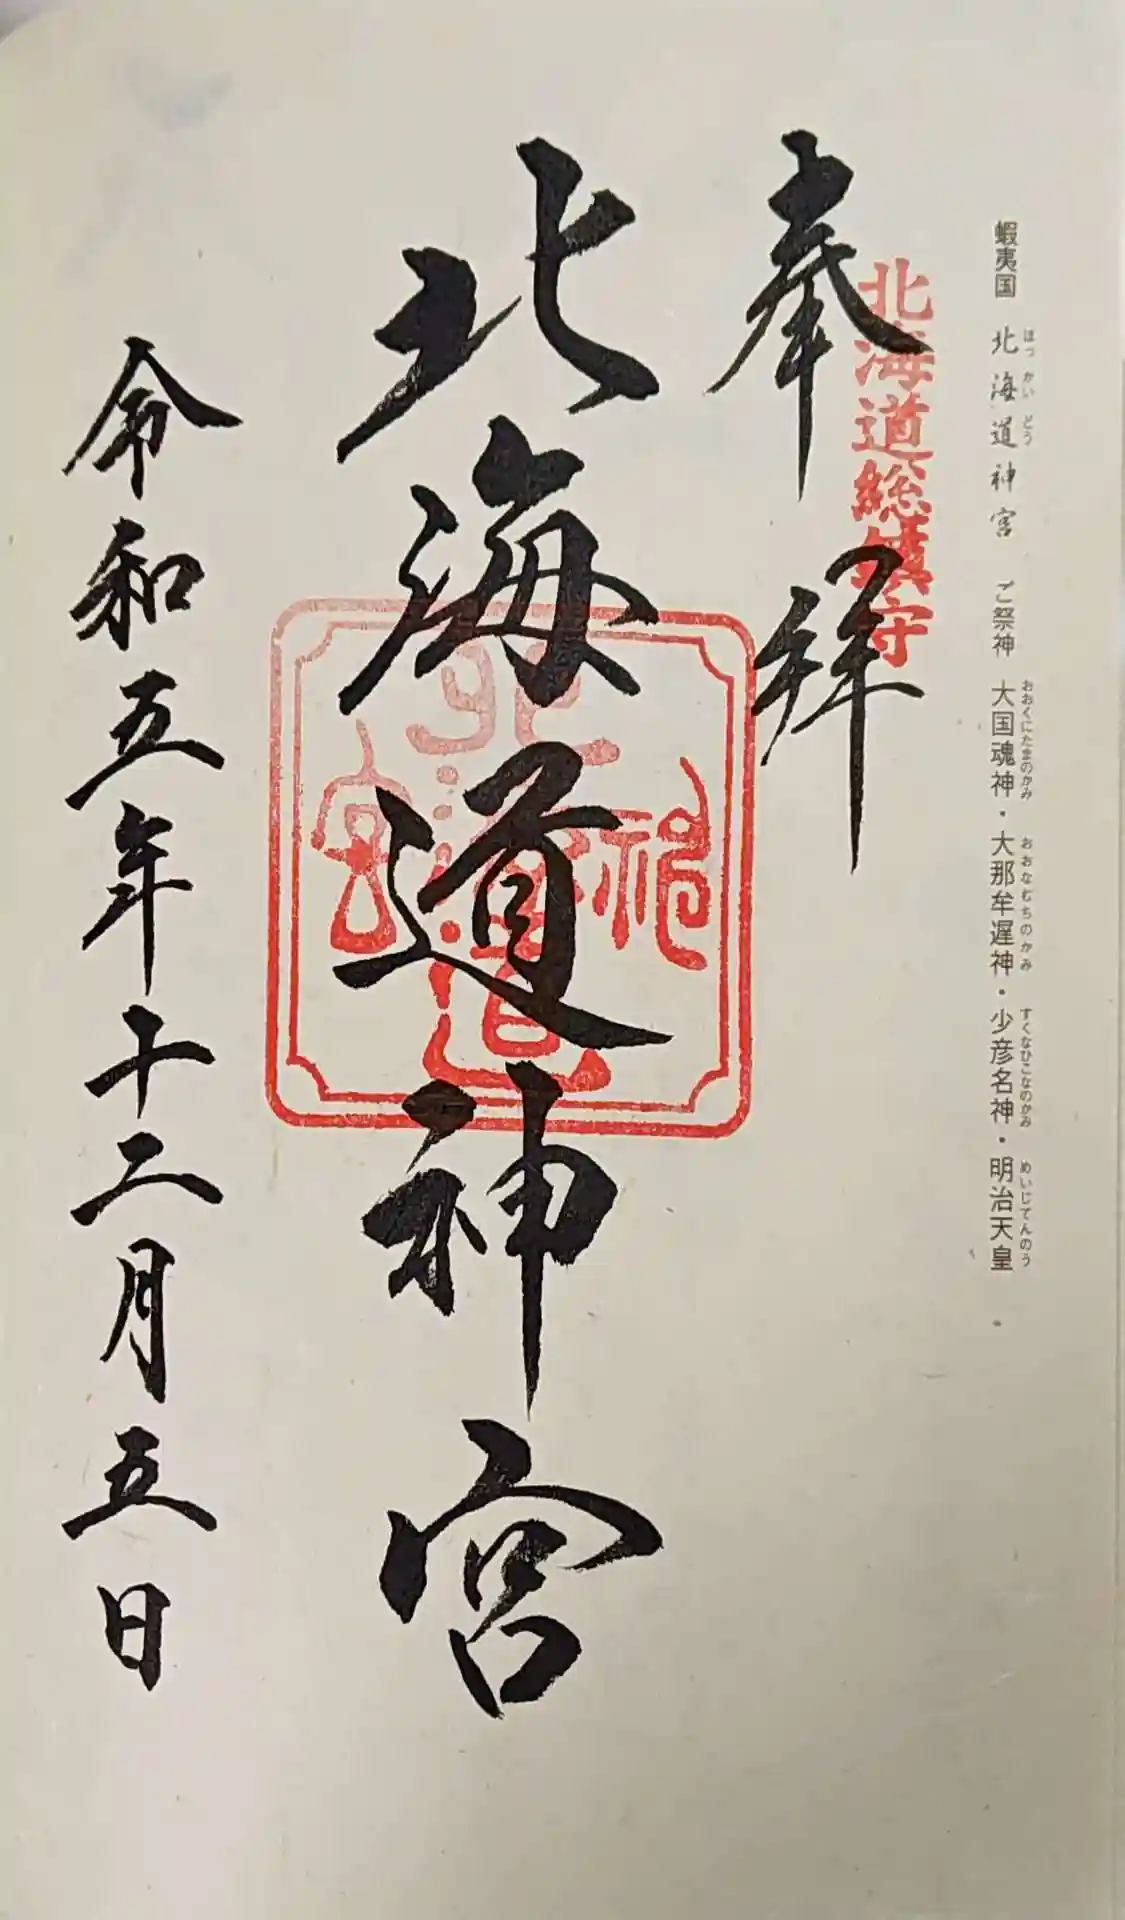 蝦夷国 北海道神宮 ご祭神 大国魂神・大那牟遅神・少彦名神・明治天皇
ほっかいどう おおくにたまのかみ おおなむちのかみ すくなひこなのかみ めいじてんのう
北海道総鎮守
奉拝
北海道神宮
北海道神宮
令和五年十二月五日